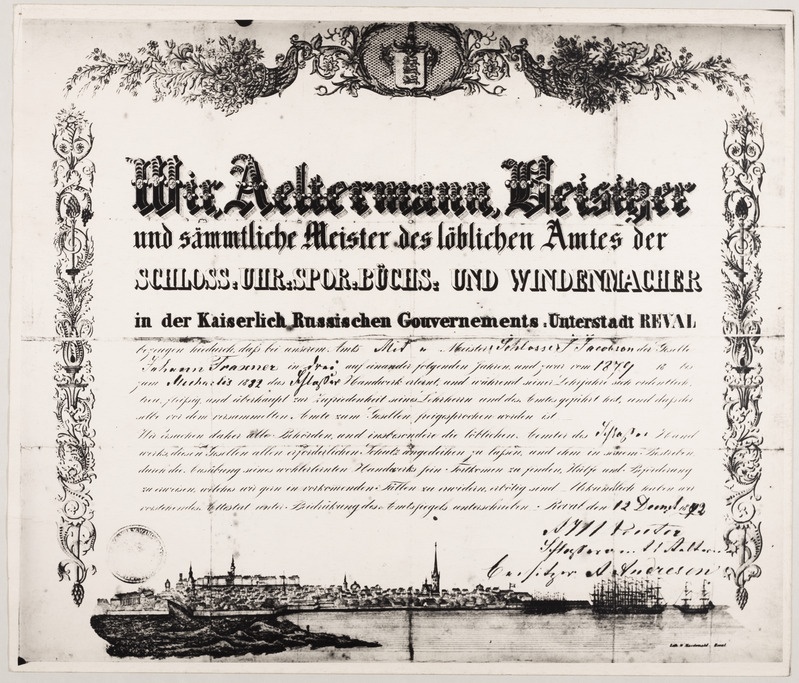 Wir, Aeltermann, Beisitzer
und sämmtliche Meister des löblichen Amtes der
SCHLOSS-UHR-SPOR-BÜCHS- UND WINDENMACHER
in der Kaiserlich Russischen Gouvernements-Unterstadt REVAL
bezeugen hiedurch, daß bei unserem Amts Mit u Meister Schlosser Jacobson der Geselle
Johann in drei auf einander folgenden Jahren, und zwar vom 1879 bis
zum Michaelis 1882 das Schlosser Handwerk erlernt, und während seiner Lehrjahre sich ordentlich,
treu, fleißig und überhaupt zur Zufriedenheit seines Lehrherrn und des Amtes geführt hat, und daß der
selbe vor dem versammelten Amte zum Gesellen freigesprochen worden ist
Wir ersuchen daher alle Behörden, und insbesondere die löblichen Aemter des Schlosser Hand
werks, diesen Gesellen allen erforderlichen Schutz angedeihen zu lassen, und ihm in seinem
durch die Ausübung seines wohlerlernten Handwerks sein Fortkomen zu finden, Hülfe und Beförderung
zu erweisen, welches wir gern in vorkomenden Fällen zu erwidern erbötig sind. Urkundlich haben wir
vorstehendes Attestat unter Bedrückung des Amtssiegels unterschrieben. Reval den 12
Beisitzer A. Andresen
Reval